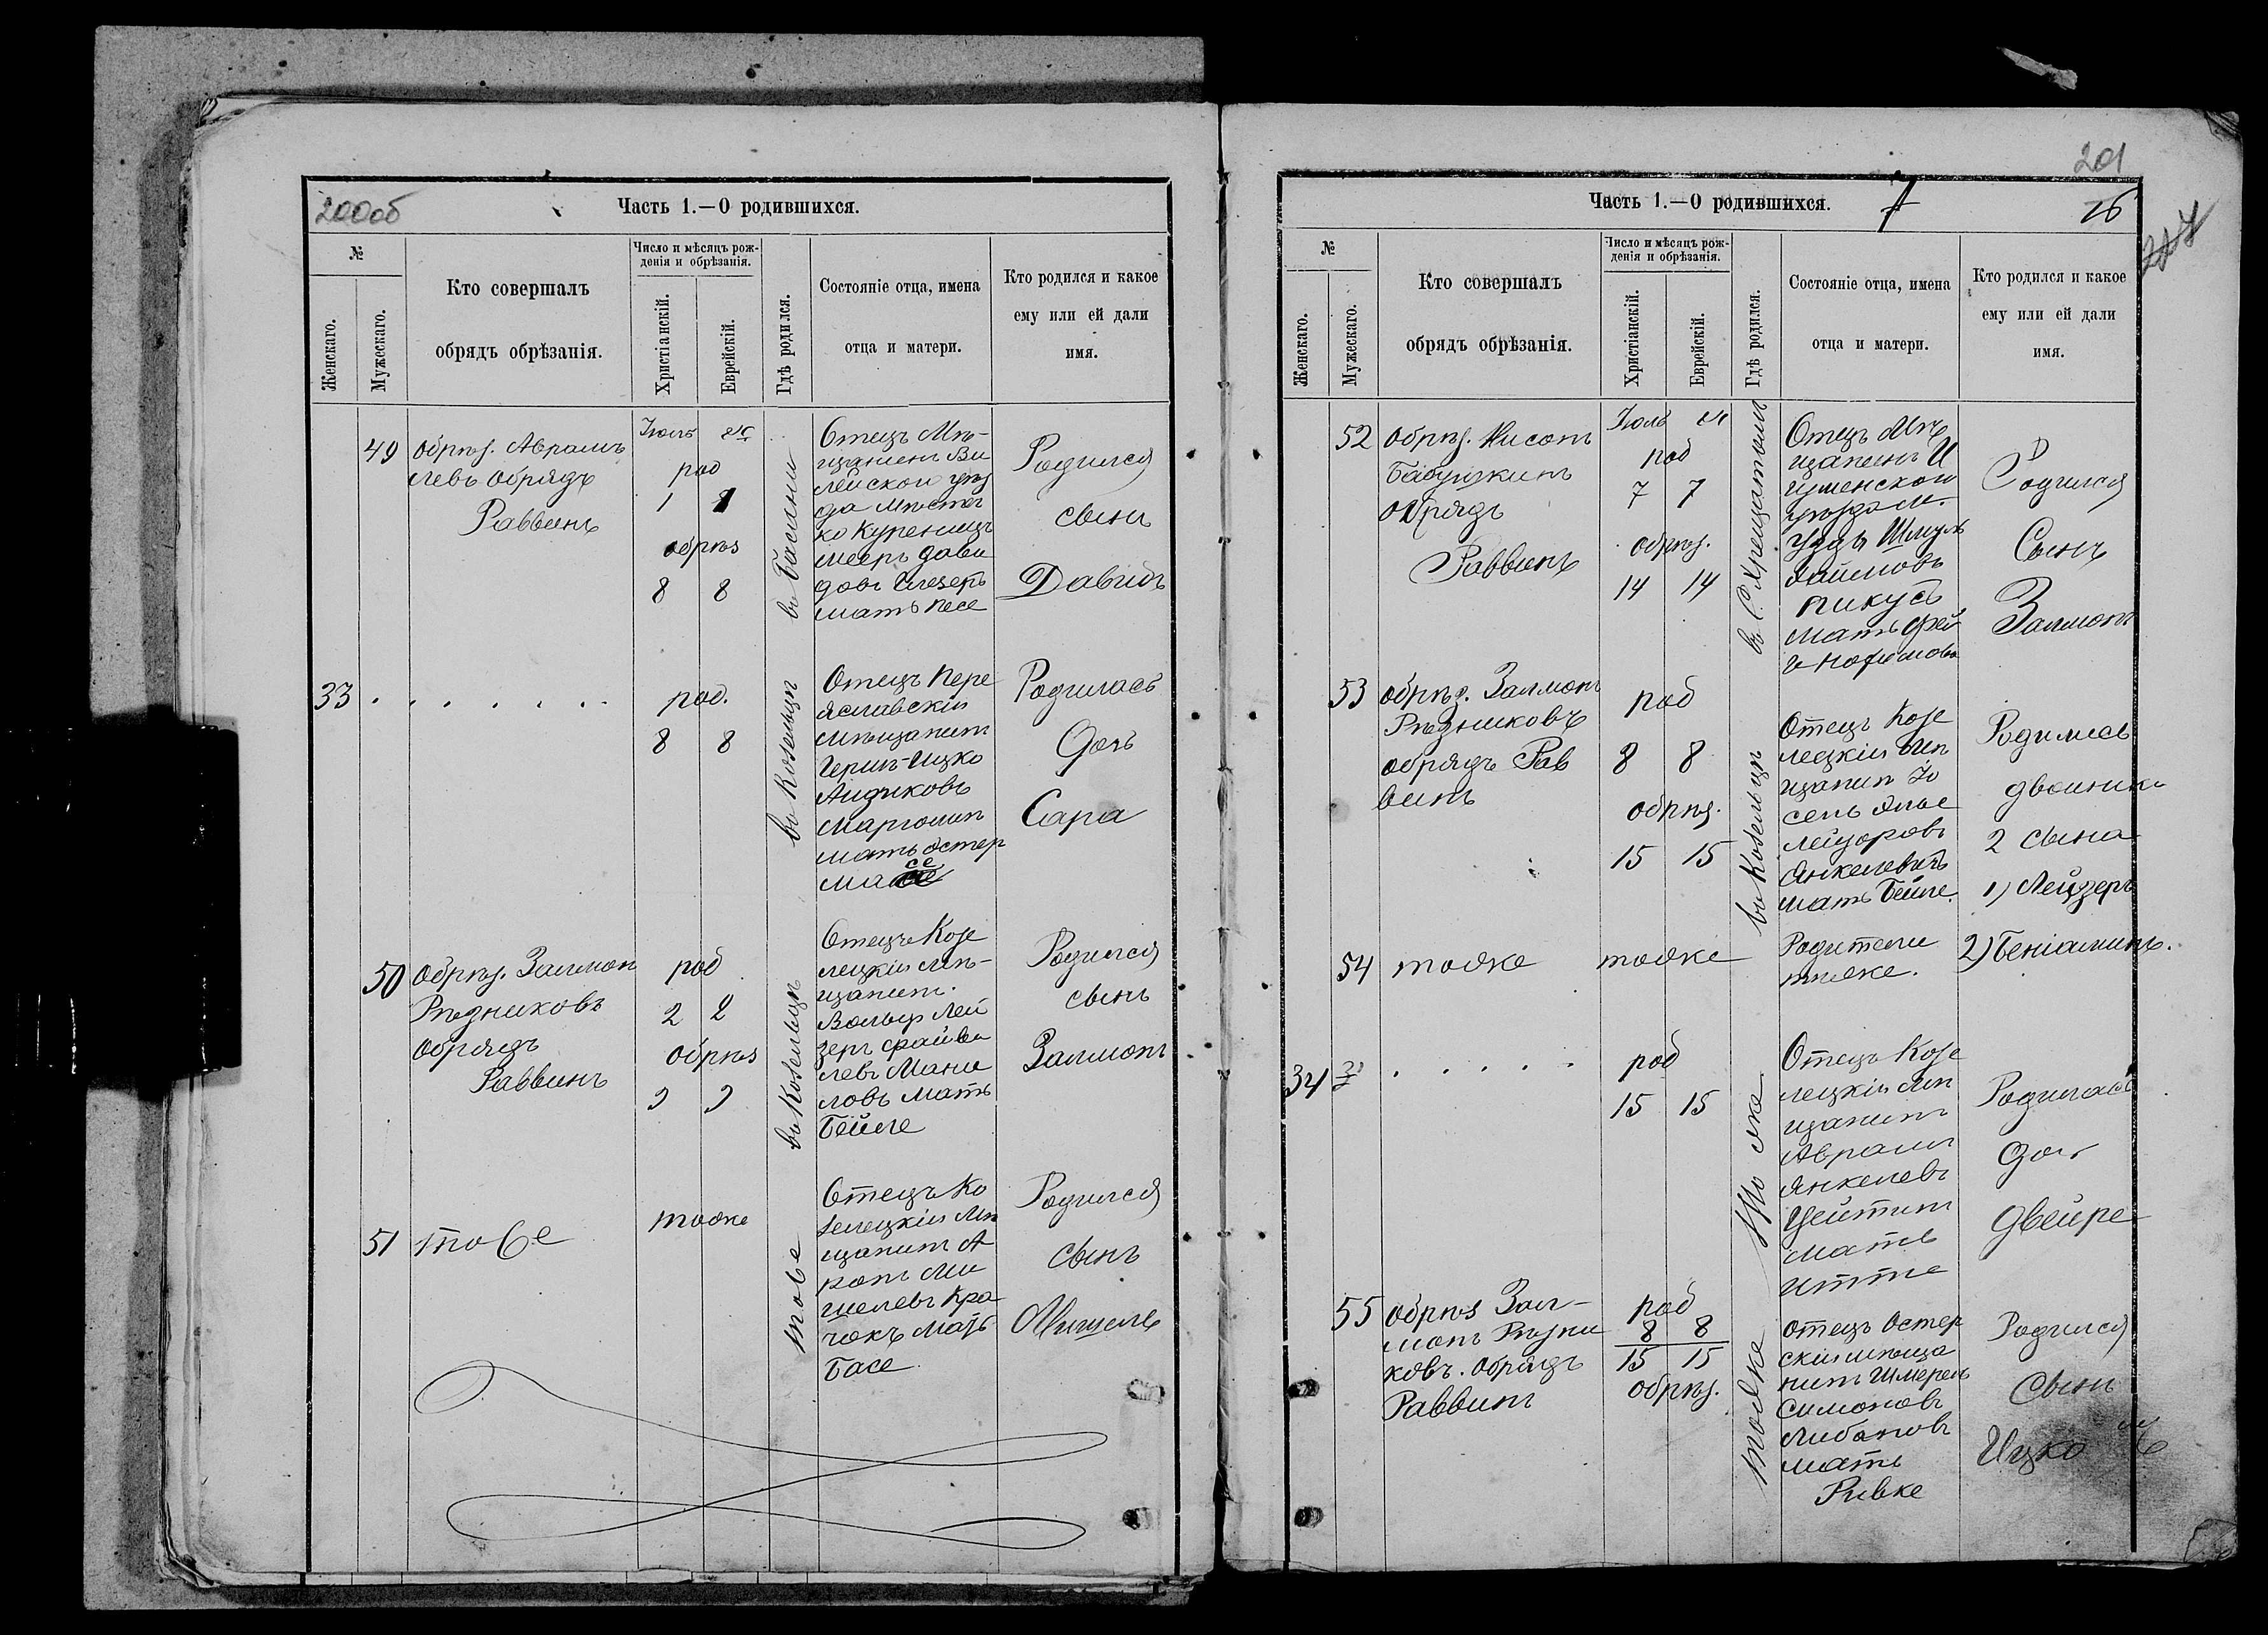 200об
Часть 1.—О родившихся.
№
Женскаго.
Мужескаго.
Кто совершалъ
обрядъ обрѣзанія.
Число и мѣсяцъ рож-
денія и обрѣзанія.
Христіанскій.
Еврейскій.
Гдѣ родился.
Состояніе отца, имена
отца и матери.
Кто родился и какое
ему или ей дали
имя.
49
Обрѣз. Авраамъ
левъ обрядъ
Раввинъ
Іюль
род
1
обрѣз
8 8
Отецъ Мѣ-
щанинъ Ви
лейской уѣз
да Мѣстеч
ко Куренецъ
Мееръ Дави
довъ
мать Песе
Родился
сынъ
Давидъ
33
род.
8 8
въ Козельцѣ
Отецъ Пере
яславскій
мѣщанинъ
Гершъ-Ицко
мать Эстер
Родилась
Дочь
Сара
50
Обрѣз. Залмон
Рѣзниковъ
обрядъ
Раввинъ
род
2 2
обрѣз
9 9
въ Козельцѣ
Отецъ Козе
лецкій мѣ-
щанин.
Вольф Лей
зеръ Файви
левъ Мани
ловъ Мать
Бейле
Родился
сынъ
Залмонъ
51
тоже
тоже
тоже
Отецъ Ко
зелецкій Мѣ
щанинъ А
ронъ Ми
шелевъ Кра
чокъ Мать
Басе
Родился
сынъ
Мишель
201
Часть 1.—О родившихся.
7
№
Женскаго.
Мужескаго.
Кто совершалъ
обрядъ обрѣзанія.
Число и мѣсяцъ рож-
денія и обрѣзанія.
Христіанскій.
Еврейскій.
Гдѣ родился.
Состояніе отца, имена
отца и матери.
Кто родился и какое
ему или ей дали
имя.
52
Обрѣз. Нисонъ
Бабушкинъ
обрядъ
Раввинъ
Іюль
род
7 7
обрѣз.
14 14
въ С. Крещатомъ
Отецъ Мѣ
щанинъ И
гуменскои
Шмуль
Хаимовъ
Пикусъ
Мать Фей
Родился
Сынъ
Залмонъ
53
Обрѣз. Залмонъ
Рѣзниковъ
обрядъ Рав
винъ
род
8 8
обрѣз.
15 15
въ Козельцѣ
Отецъ Козе
лецкій Мѣ
щанин Іо
сель
лейзоровъ
Янкелевичъ
мать Бейле.
Родились
двойники
2 сына
1) Лейзеръ
54
тоже
тоже
Родители
тѣже.
2) Беніаминъ.
34
род
15 15
То же
Отецъ Козе
лецкій Мѣ
щанинъ
Авраамъ
Янкелевъ
Цейтлин
Мать
Итте
Родилась
Доч
Двейре
55
Обрѣз Зал-
монъ Рѣзни
ковъ. обрядъ
Раввинъ
род
8 8
15 15
обрѣз.
тоже
Отецъ Остер
скій мѣща
нинъ Шмерель
Симоновъ
Либановъ
мать
Ривке
Родился
Сынъ
Ицко